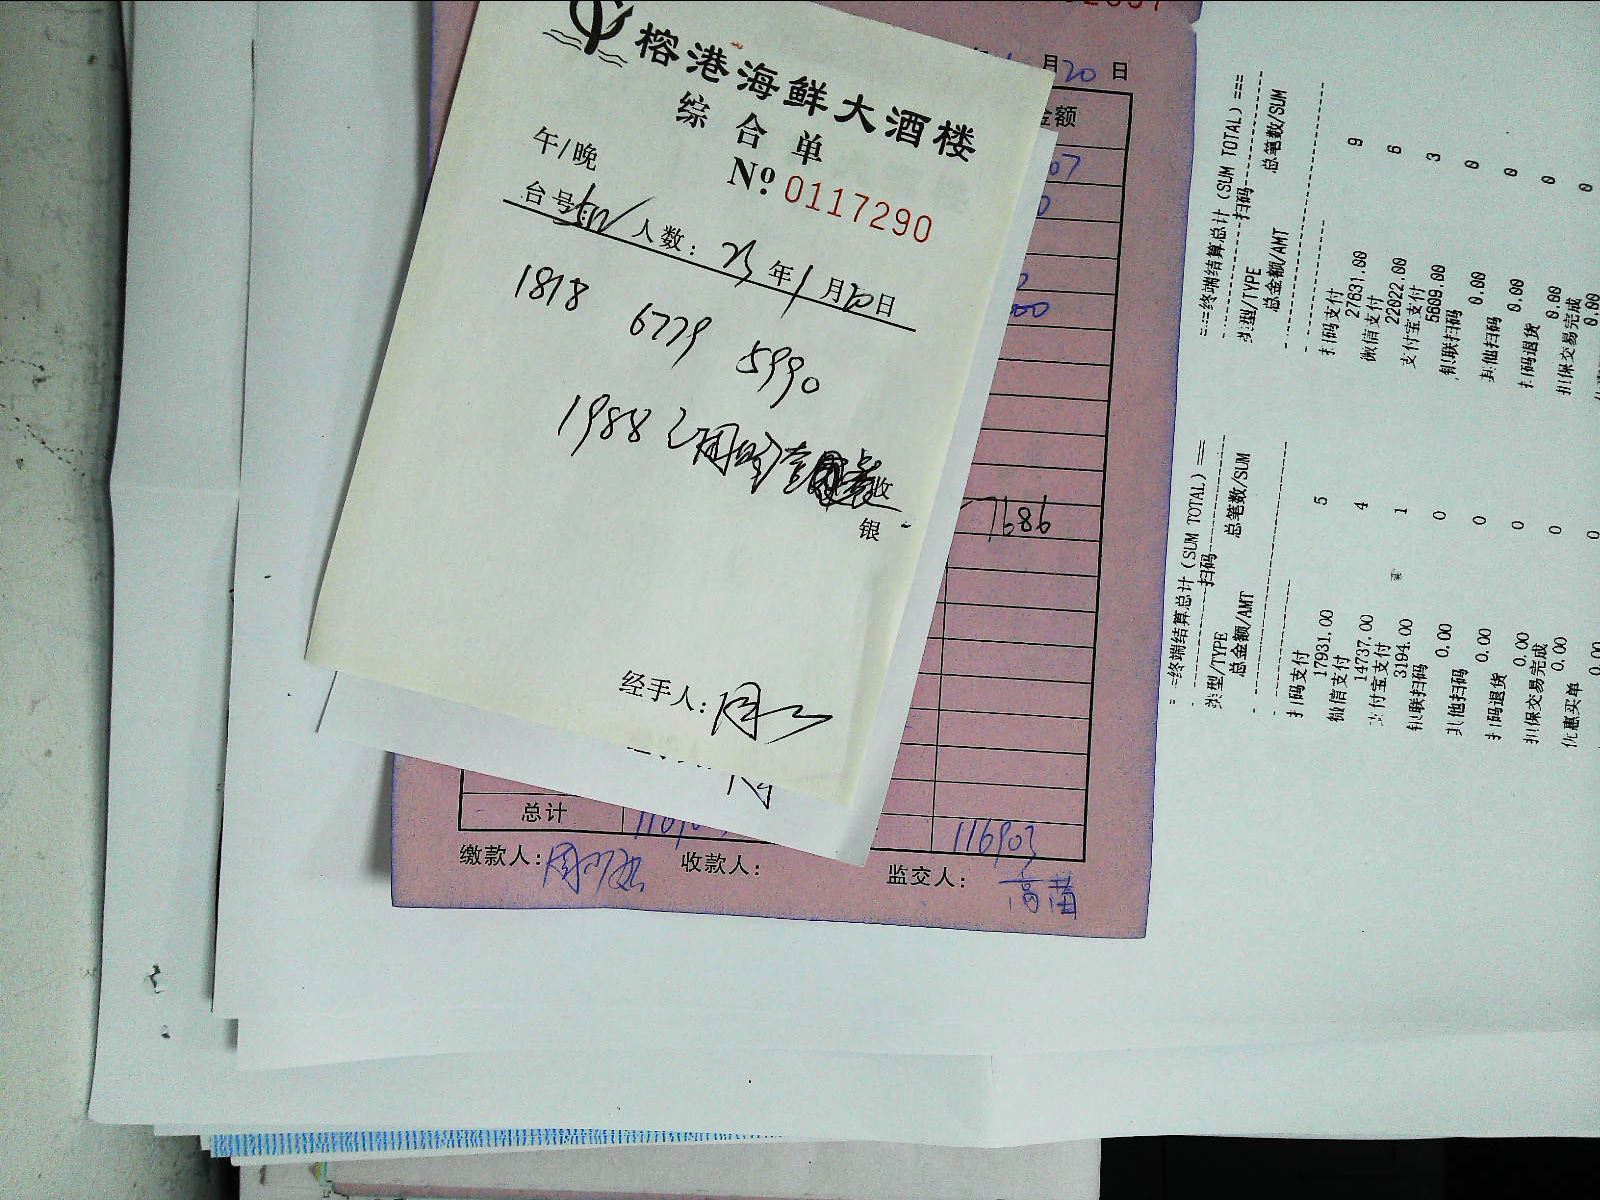 榕港海鲜大酒楼
综合单
午/晚
No. 0117290
台号 人数: 23年1月20日
1818 6779 5990
1988
收
银
经手人:
月20日
金额
07
0
00
1989
总计 116903
缴款人: 收款人: 监交人:
===终端结算总计(SUM TOTAL)===
扫码
类型/TYPE 总笔数/SUM
总金额/AMT
扫码支付 9
27831.00
微信支付 6
22022.00
支付宝支付 3
5809.00
银联扫码 0
0.00
其他扫码 0
0.00
扫码退货 0
0.00
担保交易完成 0
0.00
=终端结算总计(SUM TOTAL)===
扫码
类型/TYPE 总笔数/SUM
总金额/AMT
扫码支付 5
17931.00
微信支付 4
14737.00
支付宝支付 1
3194.00
银联扫码 0
0.00
其他扫码 0
0.00
扫码退货 0
0.00
担保交易完成 0
0.00
优惠买单 0
0.00